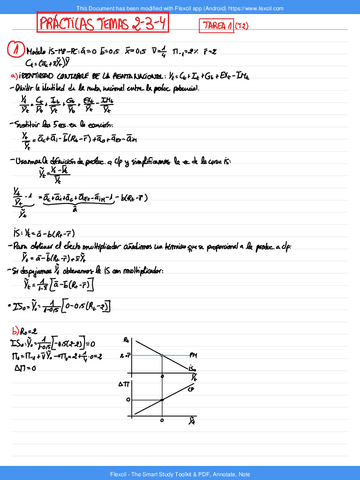 This Document has been modified with Flexcil app (Android) https://www.flexcil.com
PRÁCTICAS TEMAS 2-3-4
TAREA 1 (T2)
1 Modelo IS-MP-PC: ā=0 b̄=0.5 x̄=0.5 v̄=1/4 Π₋₁=2% r̄=2
a) IDENTIDAD CONTABLE DE LA RENTA NACIONAL: Yt=Ct+It+Gt+EXt-IMt
- Dividir la identidad de la renta nacional entre la produc. potencial.
Yt/Ȳt = Ct/Ȳt + It/Ȳt + Gt/Ȳt + EXt/Ȳt - IMt/Ȳt
- Sustituir las 5 ecs. en la ecuación:
- Usamos la definición de produc. a Cp y simplificamos la ec de la curva IS:
Ỹt = (Yt-Ȳt)/Ȳt
IS: Ỹt = ā-b̄(Rt-r̄)
- Para obtener el efecto multiplicador añadimos un término que sea proporcional a la produc a cp:
Ỹt = ā-b̄(Rt-r̄)+x̄Ỹt
- Si despejamos Ỹt obtenemos la IS con multiplicador:
Ỹt = 1/(1-x̄) [ā-b̄(Rt-r̄)]
• IS₀ = Ỹt = 1/(1-0.5) [0-0.5(Rt-2)]
b) R₀=2
IS₀: Ỹ₀ = 1/(1-0.5) [-0.5(2-2)]=0
Π₀ = Π₋₁+v̄Ỹ₀ → Π₀ = 2+1/4·0=2
ΔΠ=0
Rt
MP
IS₀
0
Ỹt
ΔΠ
CP
0
0
Ỹt
Flexcil - The Smart Study Toolkit & PDF, Annotate, Note